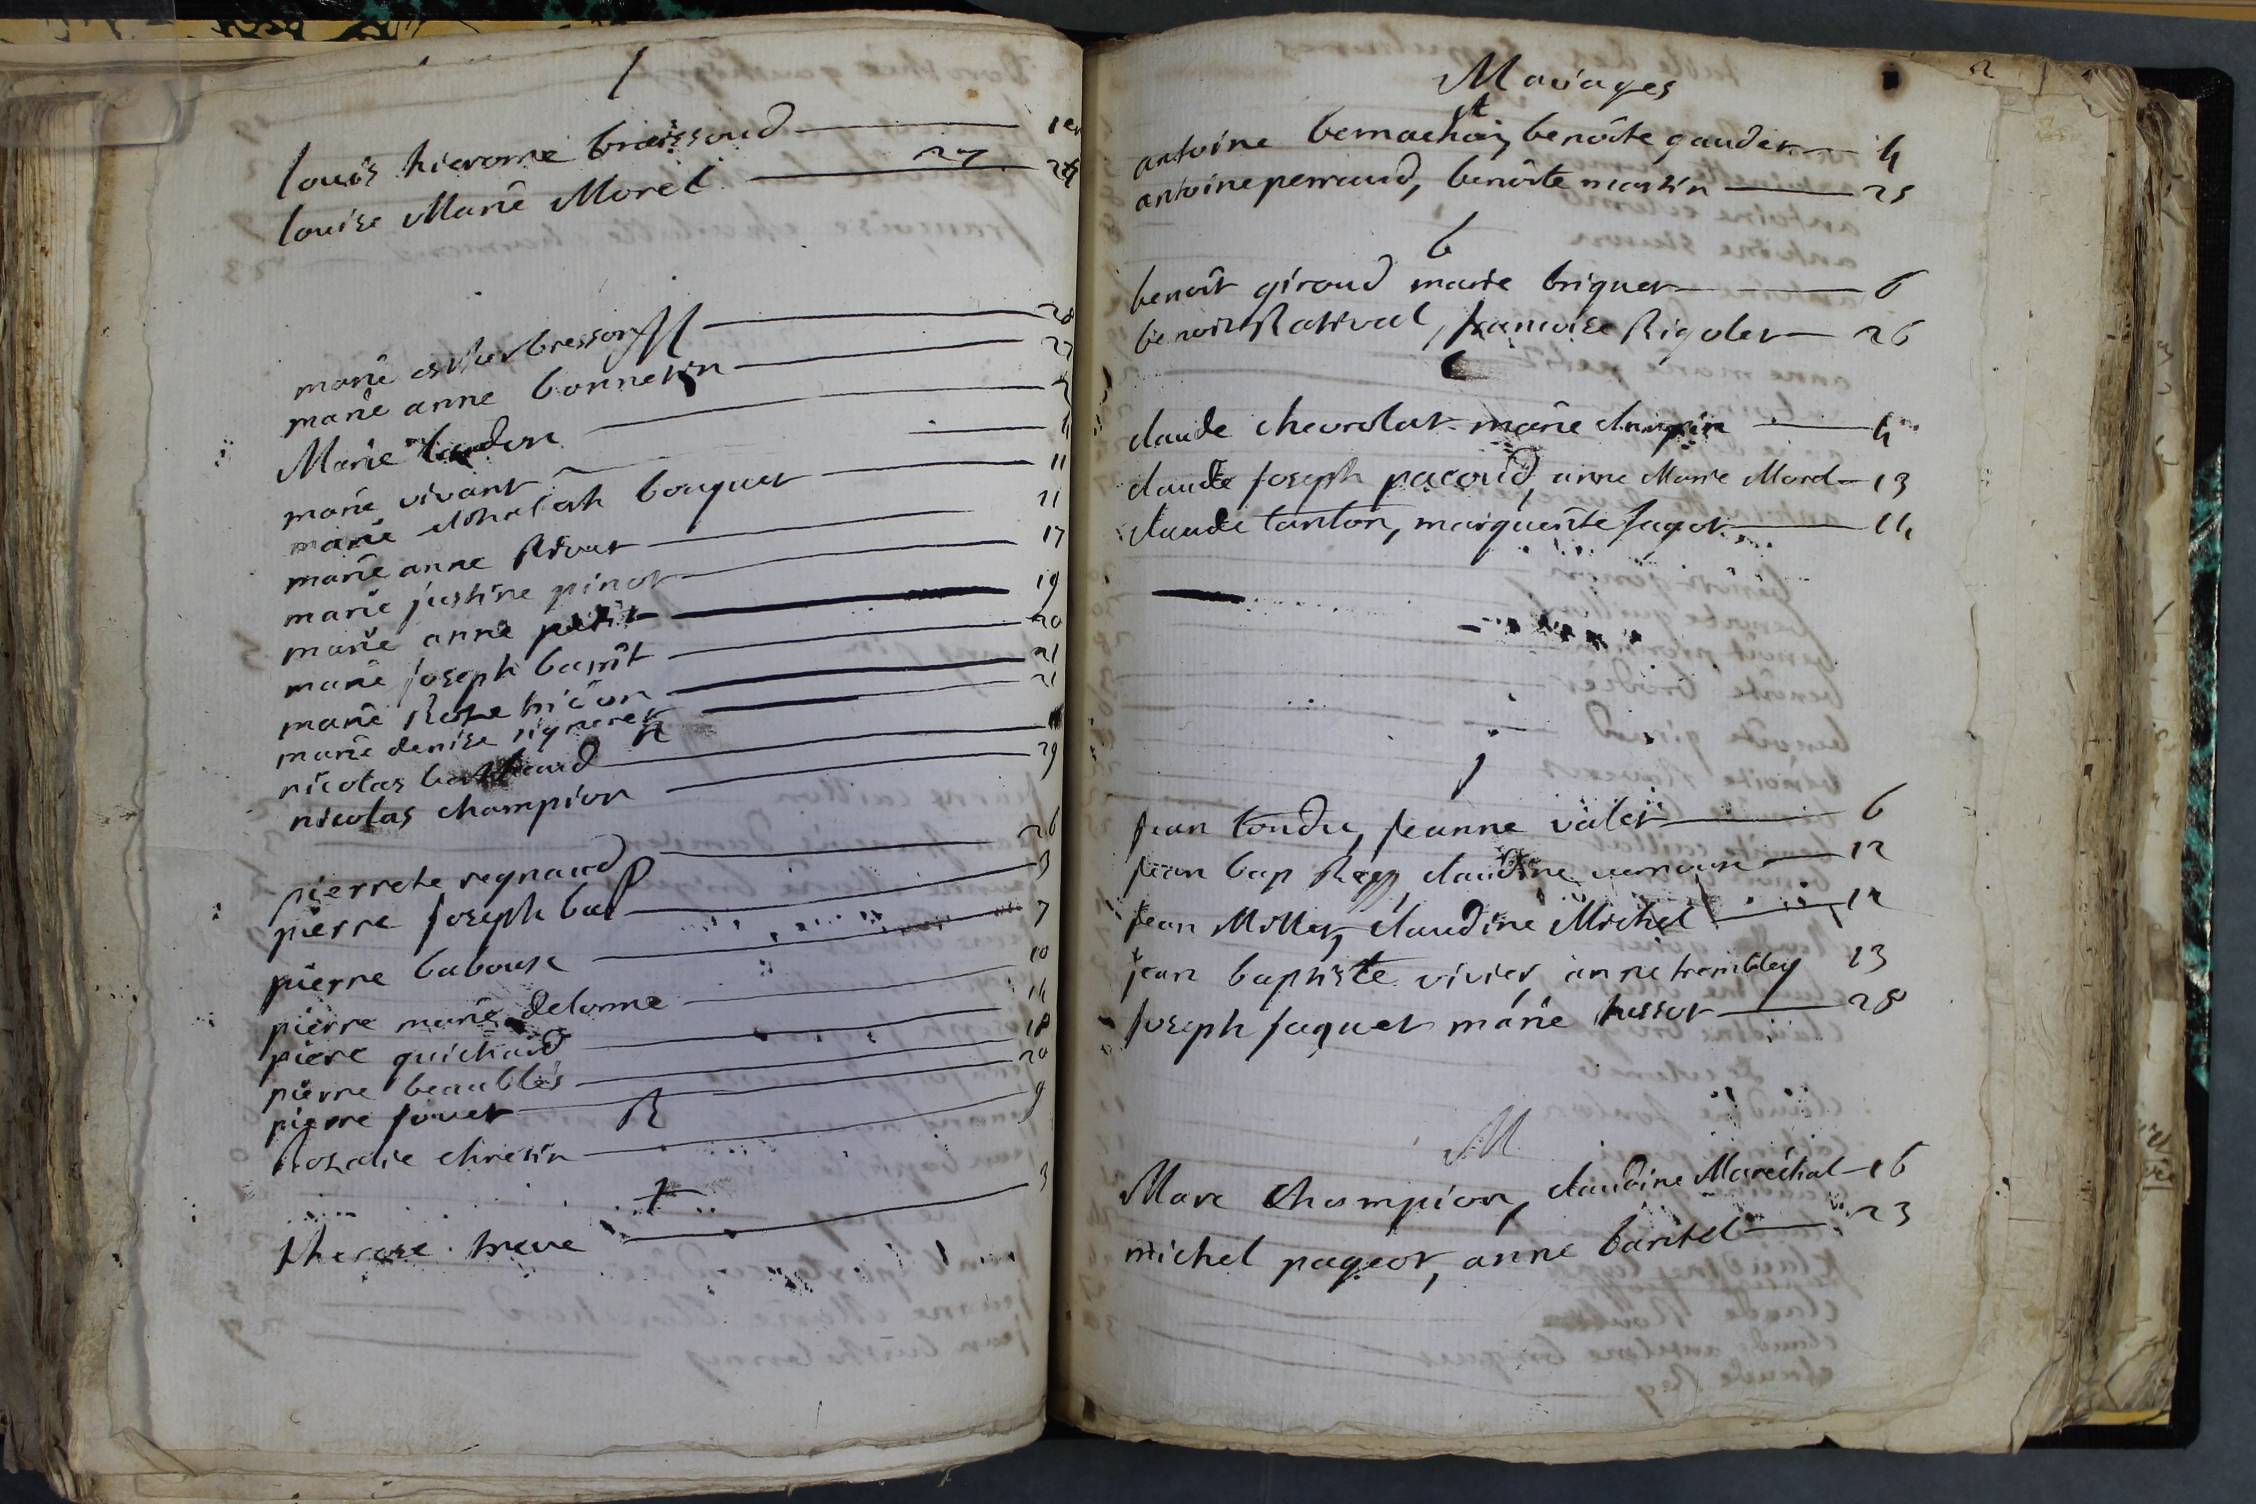 l
louis hierome 1er
louise Marie Morel 27
M
marie esther bresson 28
marie anne bonnetin 27
Marie
marie vivant
marie bouquet 11
marie anne 11
marie justine pinot 17
marie anne petit 19
marie joseph 20
marie Rose 21
marie denise 21
n
nicolas
nicolas champion 29
p
pierrete reynaud 26
pierre joseph bal 3
pierre babouse 7
pierre marie delorme 10
piere guichard 14
pierre beaublés 18
pierre jouet 20
R
Rozalie chresin 9
t
therese treve 3
2
Mariages
A
antoine benoite gaudet 4
antoine perraud, benoite martin 25
b
benoit giroud marie briquet 6
benoit Rativul, francoise Rigolet 26
c
claude chevrolat marie 4
claude joseph pacoud, anne Marie Morel 13
claude tanton, marguerite jaquet 14
j
jean tondu, jeanne valet 6
jean bap Rey, claudine 12
jean Millet, claudine Michel 12
jean baptiste vivier, anne trembley 13
joseph jaquet marie tissot 28
M
Marc Champion, claudine Maréchal 16
michel pageot, anne baritel 23